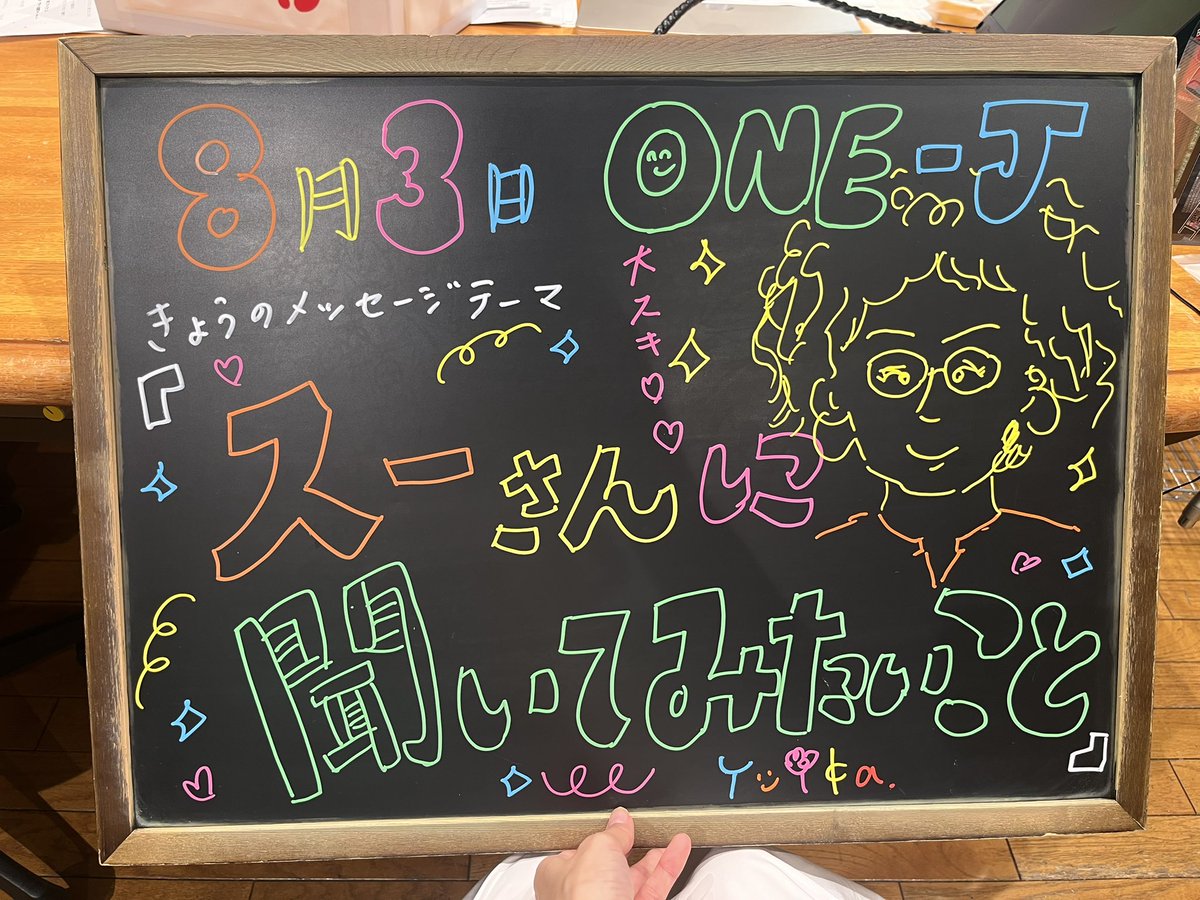 8月3日
ONE-J
大スキ
きょうのメッセージテーマ
『スーさんに
聞いてみたいこと』